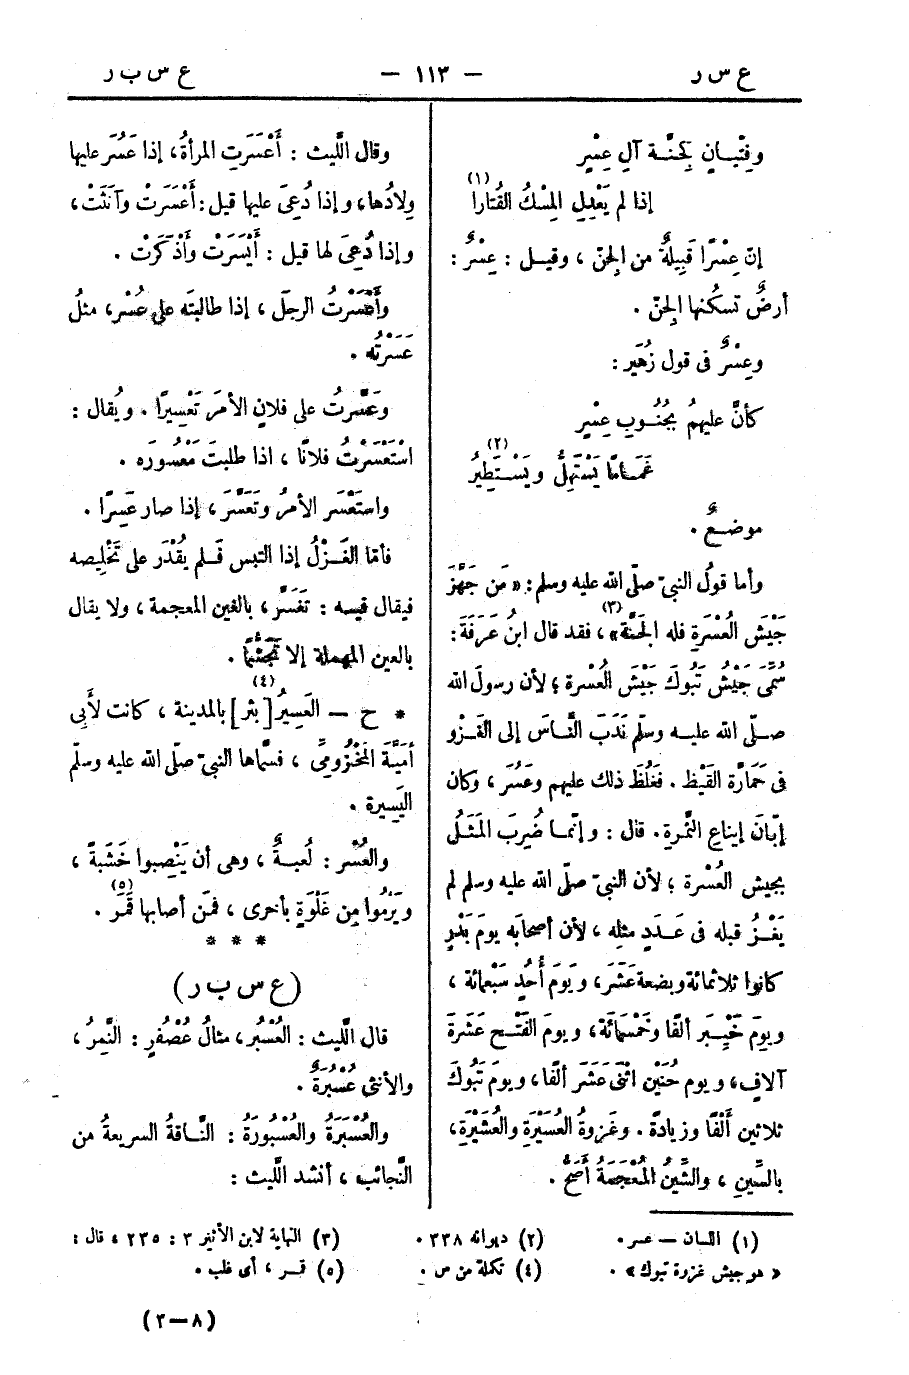 ع س ر — ١١٣ — ع س ب ر
وفِتْيانٍ كَجِنَّة آلِ عِسْرٍ
إذا لم يَعْدِلِ المِسْكُ القُتَارا (١)
إنّ عِسْرًا قَبِيلةٌ من الجِنّ ، وقيل : عِسْرٌ :
أرضٌ تسكُنها الجِنّ .
وعِسْرٌ فى قول زُهَير :
كأنَّ عليهمُ بجُنُوبِ عِسْرٍ
غَمَامًا يَسْتَهِلُّ ويَسْتَطِيرُ (٢)
موضعٌ .
وأما قولُ النبىّ صلّى الله عليه وسلم : « مَن جَهَّزَ
جَيْشَ العُسْرَةِ فله الجَنَّة (٣) » ، فقد قال ابنُ عَرَفَةَ :
سُمِّىَ جَيْشُ تَبُوكَ جَيْشَ العُسْرة ؛ لأن رسولَ الله
صلّى الله عليه وسلّم نَدَبَ النَّاسَ إلى الغَزْو
فى حَمَارَّة القَيْظ . فغَلُظَ ذلك عليهم وعَسُرَ ، وكان
إبَّانَ إيناعِ الثَّمَرةِ. قال : وإنّما ضُرِبَ المَثَلُ
بجيش العُسْرة ؛ لأن النبىّ صلّى الله عليه وسلم لم
يَغْزُ قبله فى عَدَدٍ مثلِه ، لأن أصحابَه يومَ بَدْرٍ
كانوا ثلاثمائة وبضعةَ عَشَرَ ، ويَومَ أُحُدٍ سَبْعمائة ،
ويومَ خَيْبَر ألفًا وخَمْسَمائة ، ويومَ الفَتْح عَشَرَة
آلافٍ ، ويوم حُنَيْن اثْنَىْ عَشَرَ ألفًا ، ويومَ تَبُوكَ
ثلاثين أَلْفًا وزيادة . وغَزوةُ العُسَيْرَةِ والعُشَيْرَةِ ،
بالسِّينِ ، والشِّينُ المُعْجَمَةُ أَصَحُّ .
وقال اللَّيث : أَعْسَرَتِ المرأةُ ، إذا عَسُرَ عليها
وِلادُها ، وإذا دُعِىَ عليها قيل : أَعْسَرَتْ وآنَثَتْ ،
وإذا دُعِىَ لها قيل : أَيْسَرَتْ وأَذْكَرَتْ .
وأَعْسَرْتُ الرجلَ ، إذا طالبتَه على عُسْرٍ ، مثلُ
عَسَرْتُه .
وعَسَّرْتُ على فلانٍ الأمرَ تَعْسِيرًا . ويُقال :
اسْتَعْسَرْتُ فلانًا ، اذا طلبتَ مَعْسُورَه .
واستَعْسَر الأمرُ وتَعَسَّرَ ، إذا صار عَسِرًا .
فأمّا الغَزْلُ إذا التبس فَلم يُقْدَر على تَخْلِيصه
فيقال فيه : تَغَسَّر ، بالغين المعجمة ، ولا يقال
بالعين المهملة إلا تَجَشُّمًا .
* ح — العَسِيرُ [ بئر ] (٤) بالمدينة ، كانت لأَبِى
أُمَيَّة المَخْزُومِىِّ ، فسمّاها النبىّ صلّى الله عليه وسلّم
اليَسِيرة .
والعُسْر : لُعبةٌ ، وهى أن يَنْصِبوا خَشَبةً ،
ويَرْمُوا مِن غَلْوَةٍ بأخرى ، فمَن أصابها قَمَرَ (٥) .
* * *
(ع س ب ر)
قال اللَّيث : العُسْبُر ، مثالُ عُصْفُرٍ : النَّمِرُ ،
والأنثى عُسْبُرةٌ .
والعُسْبُرَةُ والعُسْبُورَةُ : النَّاقةُ السريعةُ من
النَّجائب ، أنشد اللَّيث :
(١) اللسان — عسر . (٢) ديوانه ٣٣٨ . (٣) النهاية لابن الأثير ٣ : ٢٣٥ ، قال :
« هو جيش غزوة تبوك » . (٤) تكملة من ص . (٥) قمر ، أى غلب .
(٨—٣)